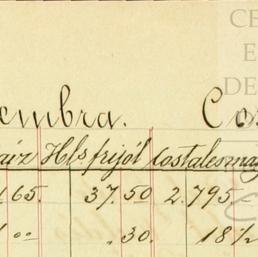 embra. Co
aíz Hls frijól Costales ma
165. 37.50 2.795
1 00 .30. 18½
CE
E
DE